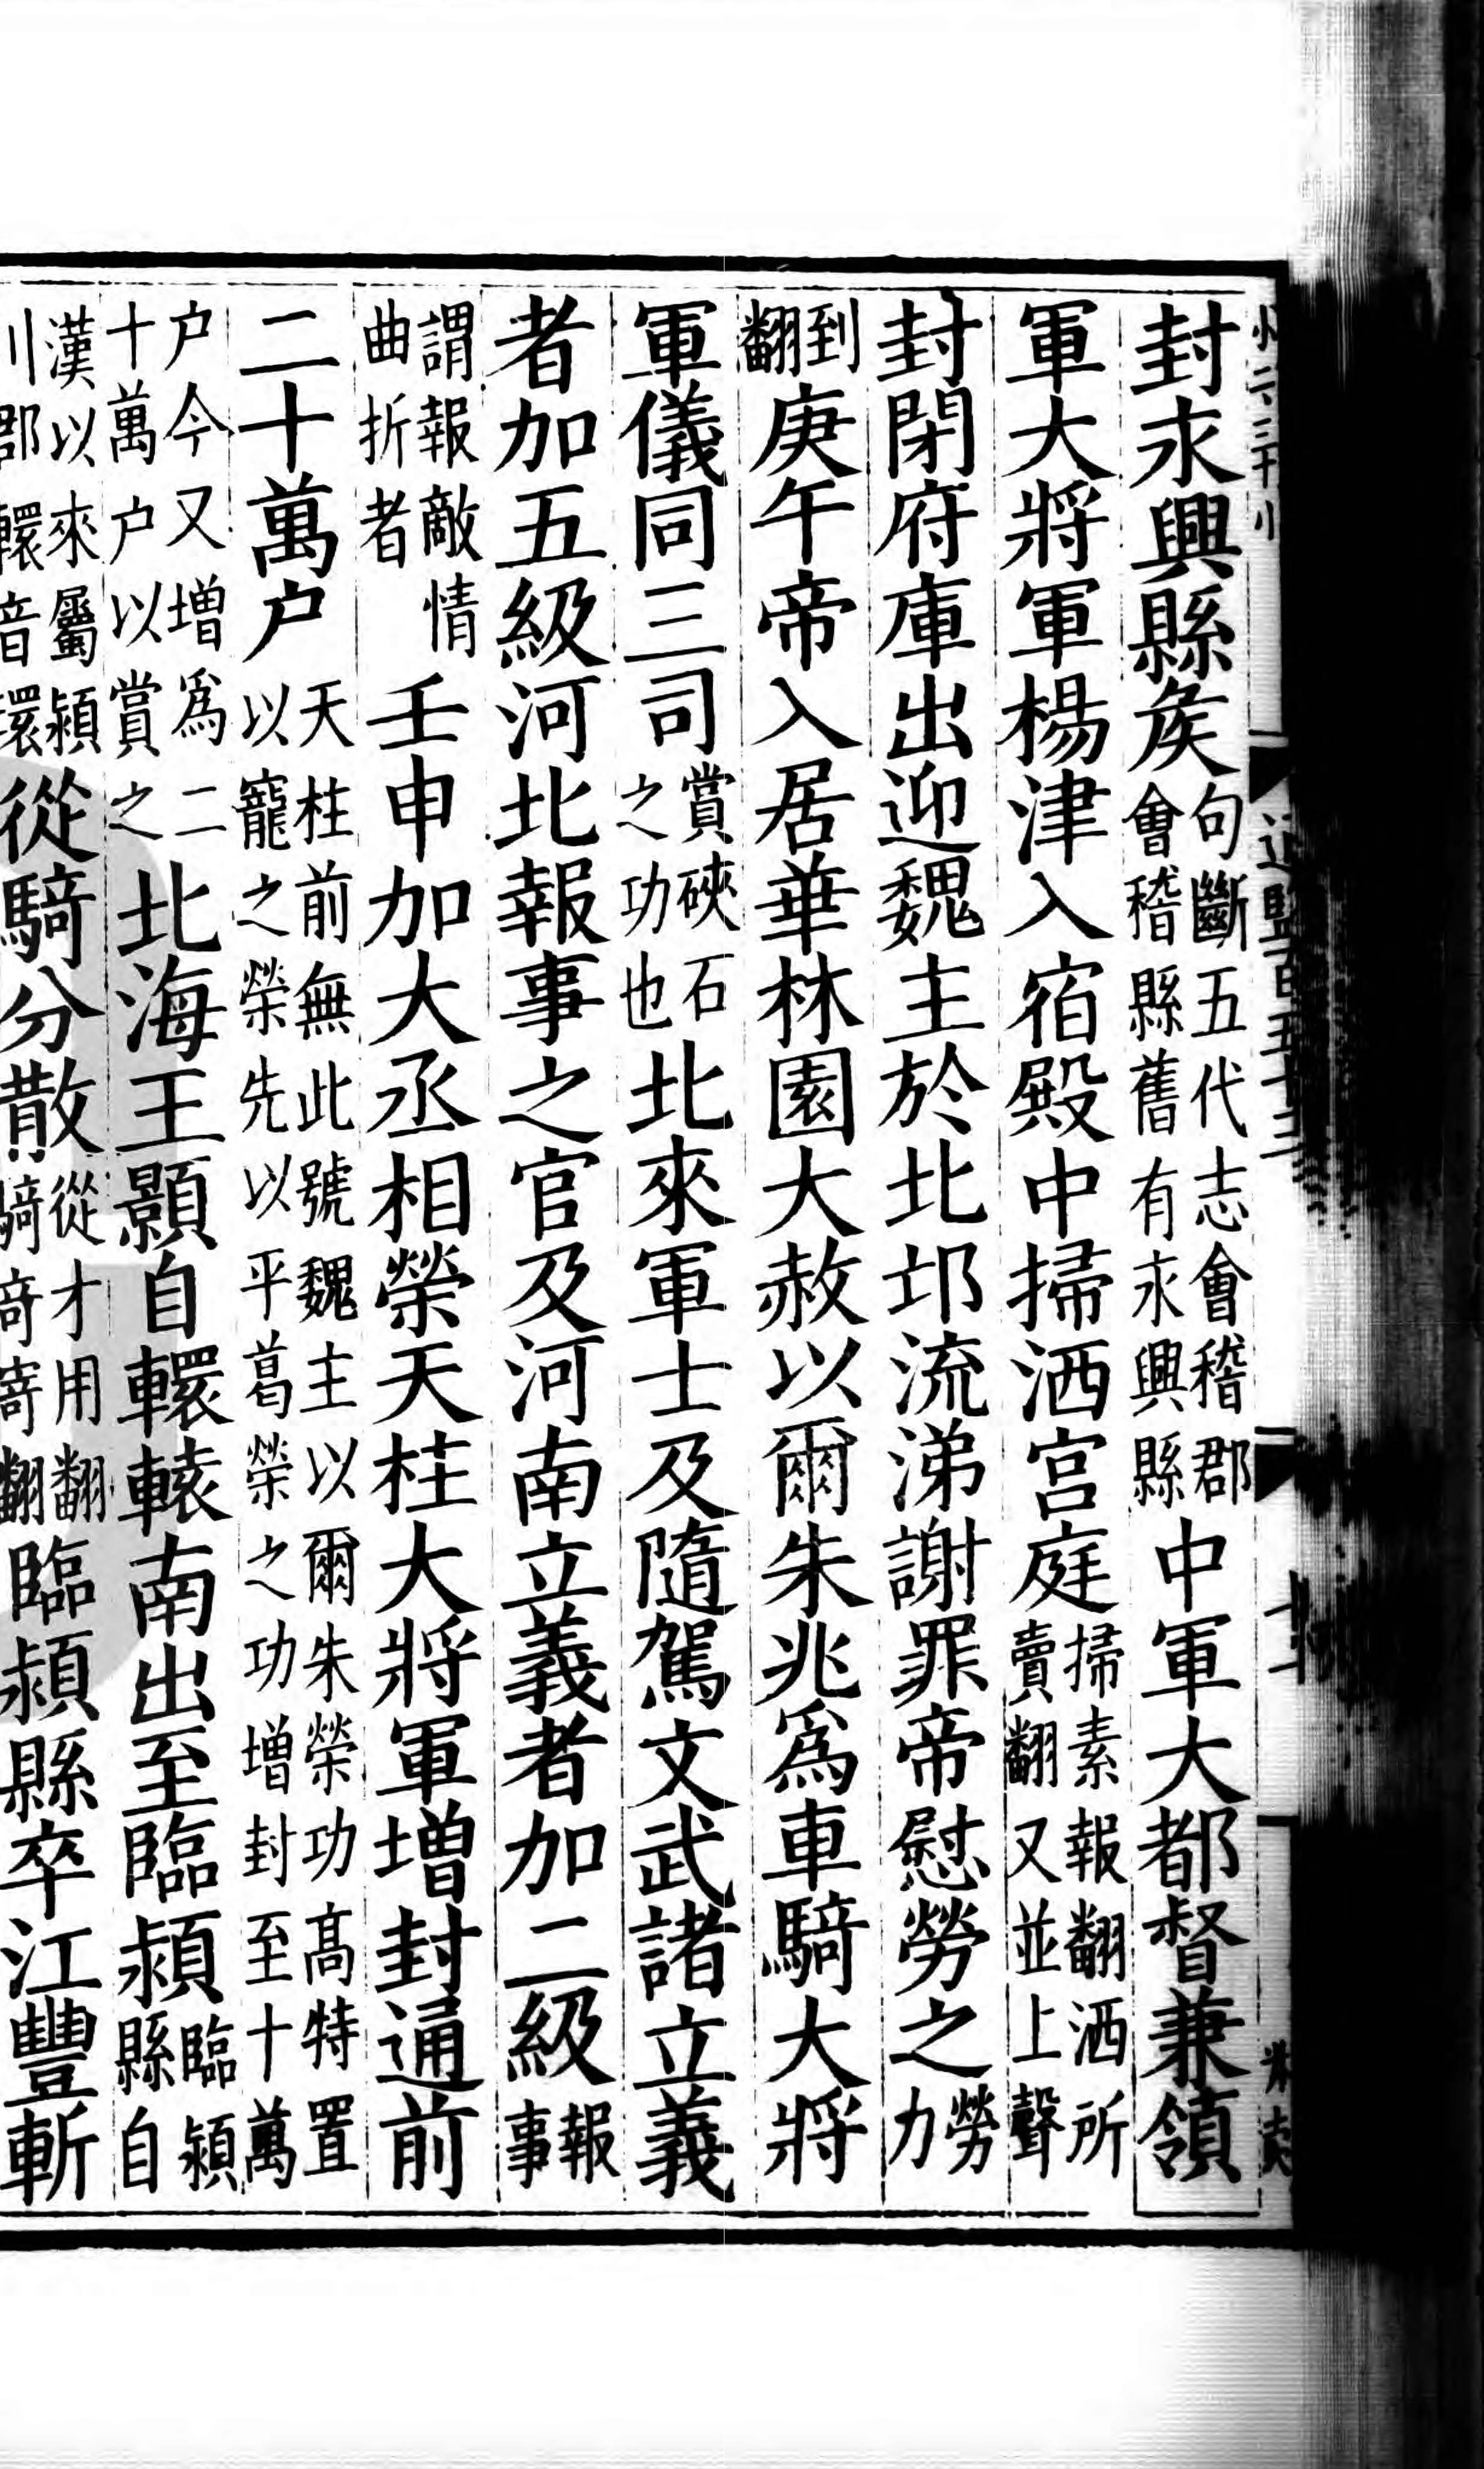 封永興縣矦句斷五代志會稽郡會稽縣舊有永興縣中軍大都督兼領
軍大將軍楊津入宿殿中掃洒宫庭掃素報翻洒所賣翻又並上聲
封閉府庫出迎魏主於北邙流涕謝罪帝慰勞之勞力
到翻庚午帝入居華林園大赦以爾朱兆爲車騎大將
軍儀同三司賞硤石之功也北來軍士及隨駕文武諸立義
者加五級河北報事之官及河南立義者加二級報事
謂報敵情曲折者壬申加大丞相榮天柱大將軍增封通前
二十萬户天柱前無此號魏主以爾朱榮功髙特置以寵之榮先以平葛榮之功增封至十萬
户今又增爲二十萬户以賞之北海王顥自轘轅南出至臨潁臨潁縣自
漢以來屬潁川郡轘音環從騎分散從才用翻騎奇寄翻臨潁縣卒江豐斬